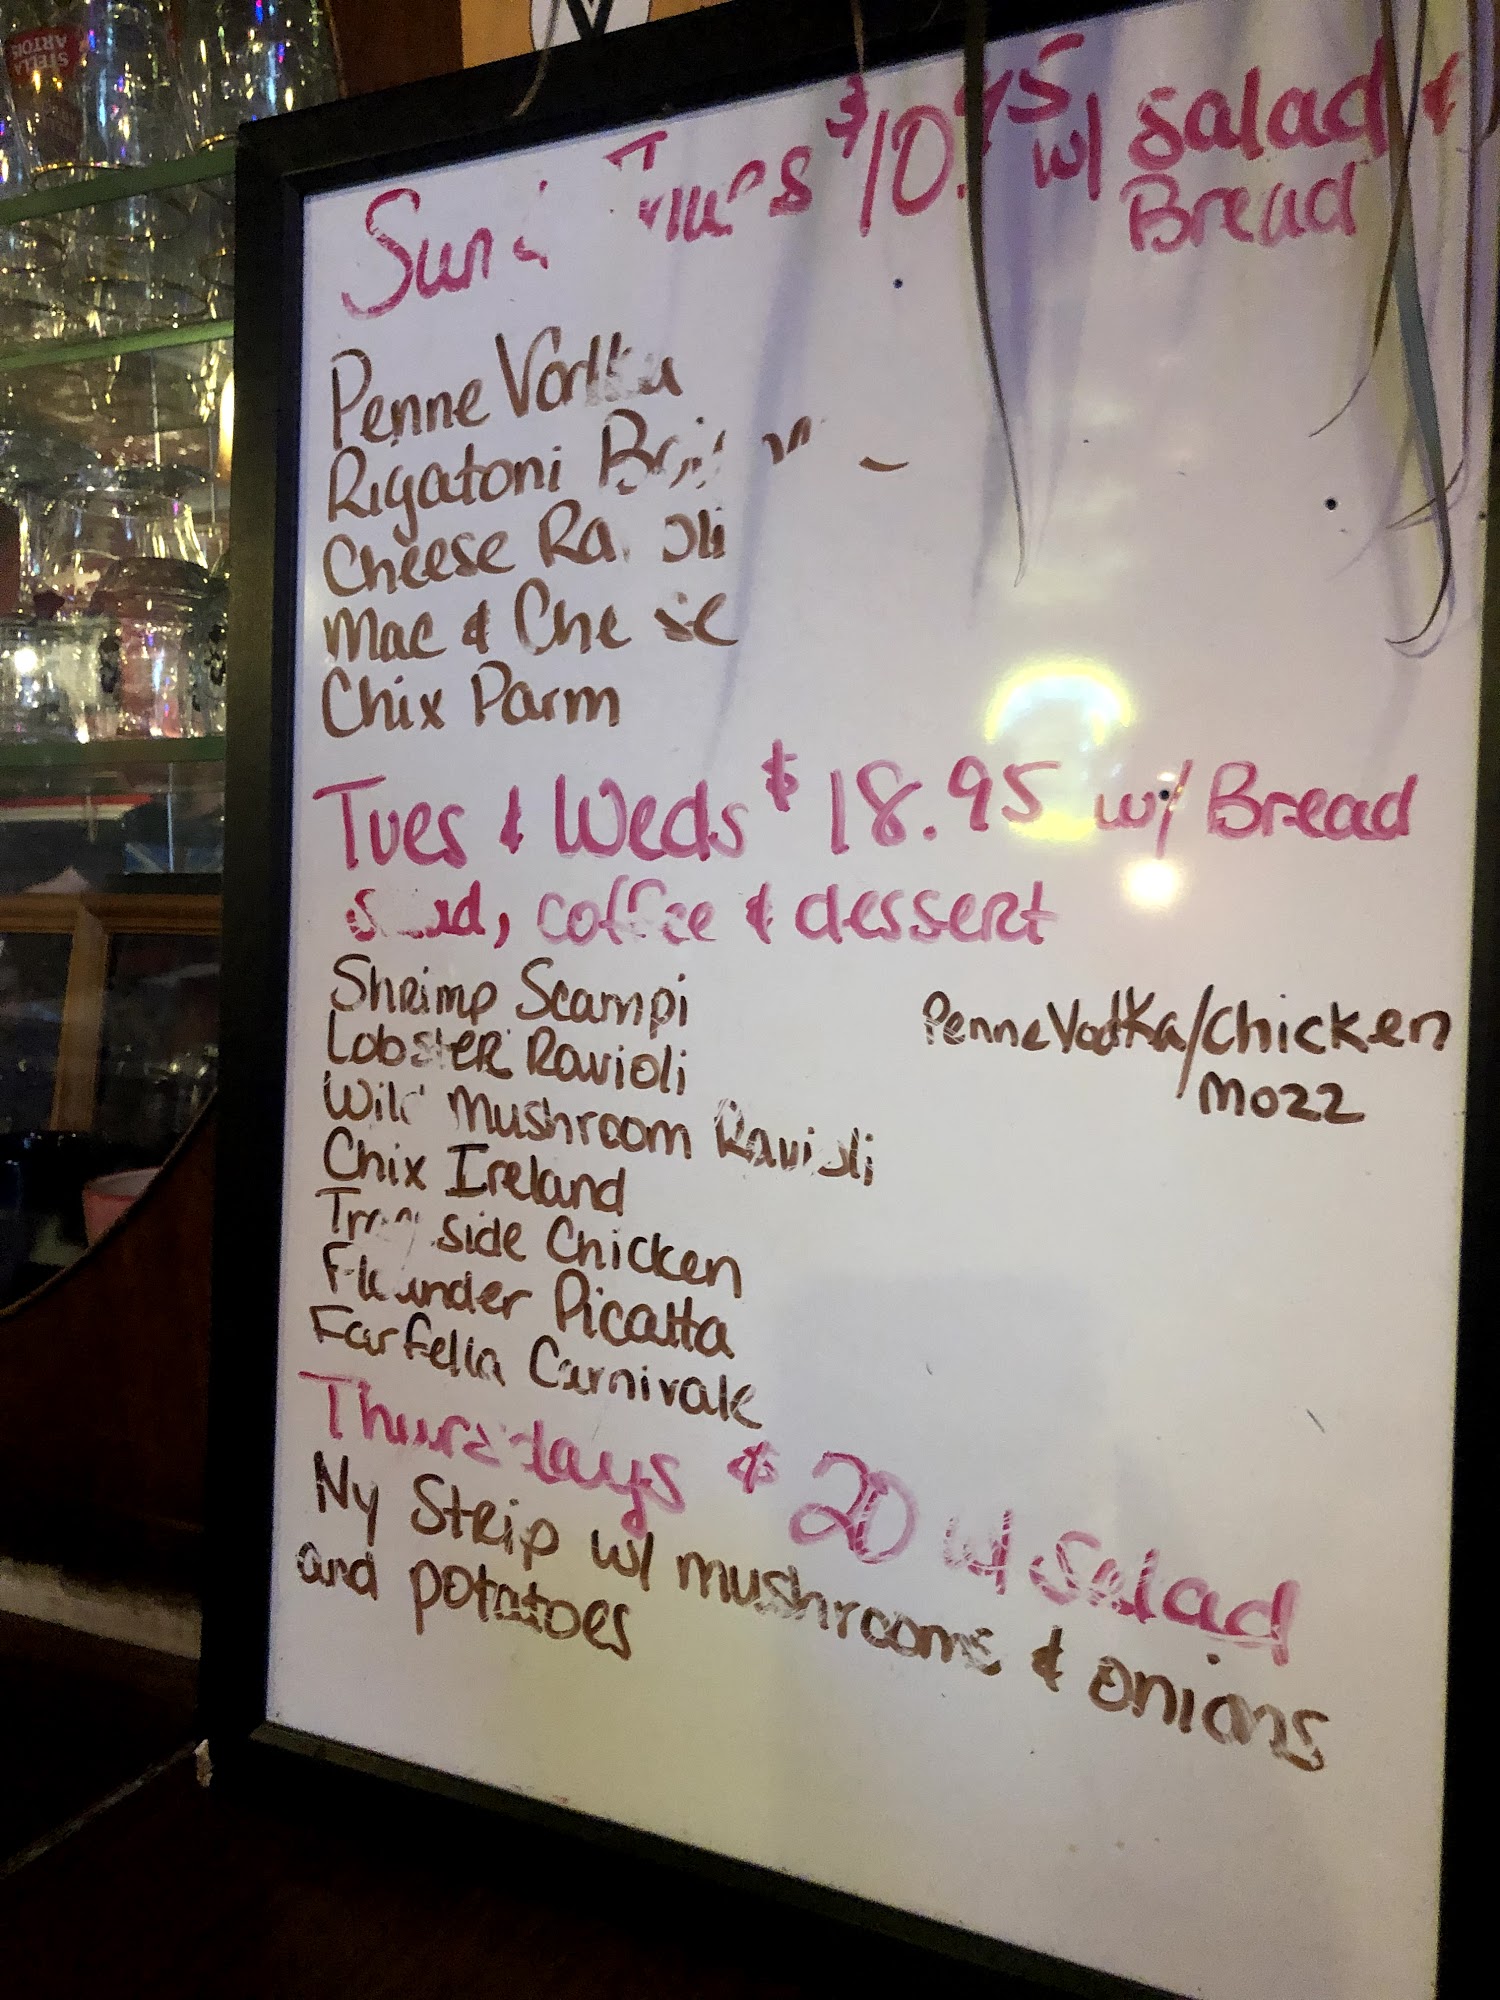 STELLA
ARTOIS
Sun & Tues $10.95 w/ salad &
Bread
Penne Vodka
Rigatoni
Cheese Ravioli
Mac & Cheese
Chix Parm
Tues & Weds $18.95 w/ Bread
salad, coffee & dessert
Shrimp Scampi
Lobster Ravioli
Penne Vodka/Chicken
Mozz
Wild Mushroom Ravioli
Chix Ireland
side Chicken
Flounder Picatta
Farfella Carnivale
Thursdays $20 w/ Salad
Ny Strip w/ mushrooms & onions
and potatoes